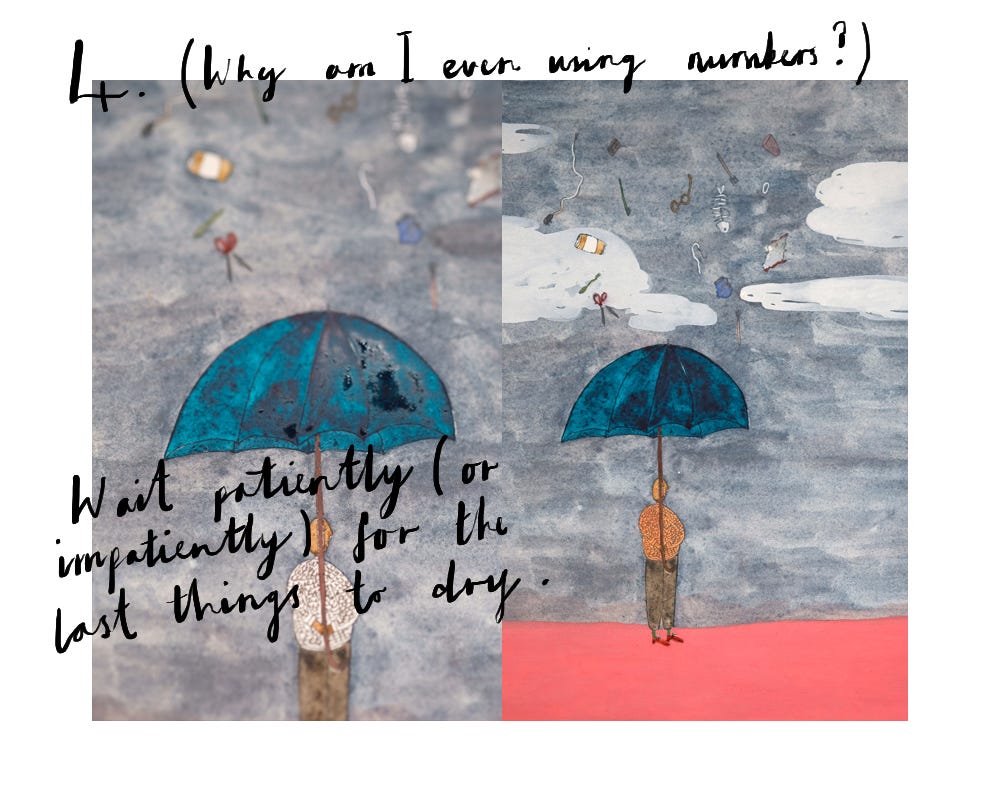 4. (Why am I even using numbers?)
Wait patiently (or
impatiently) for the
last things to dry.